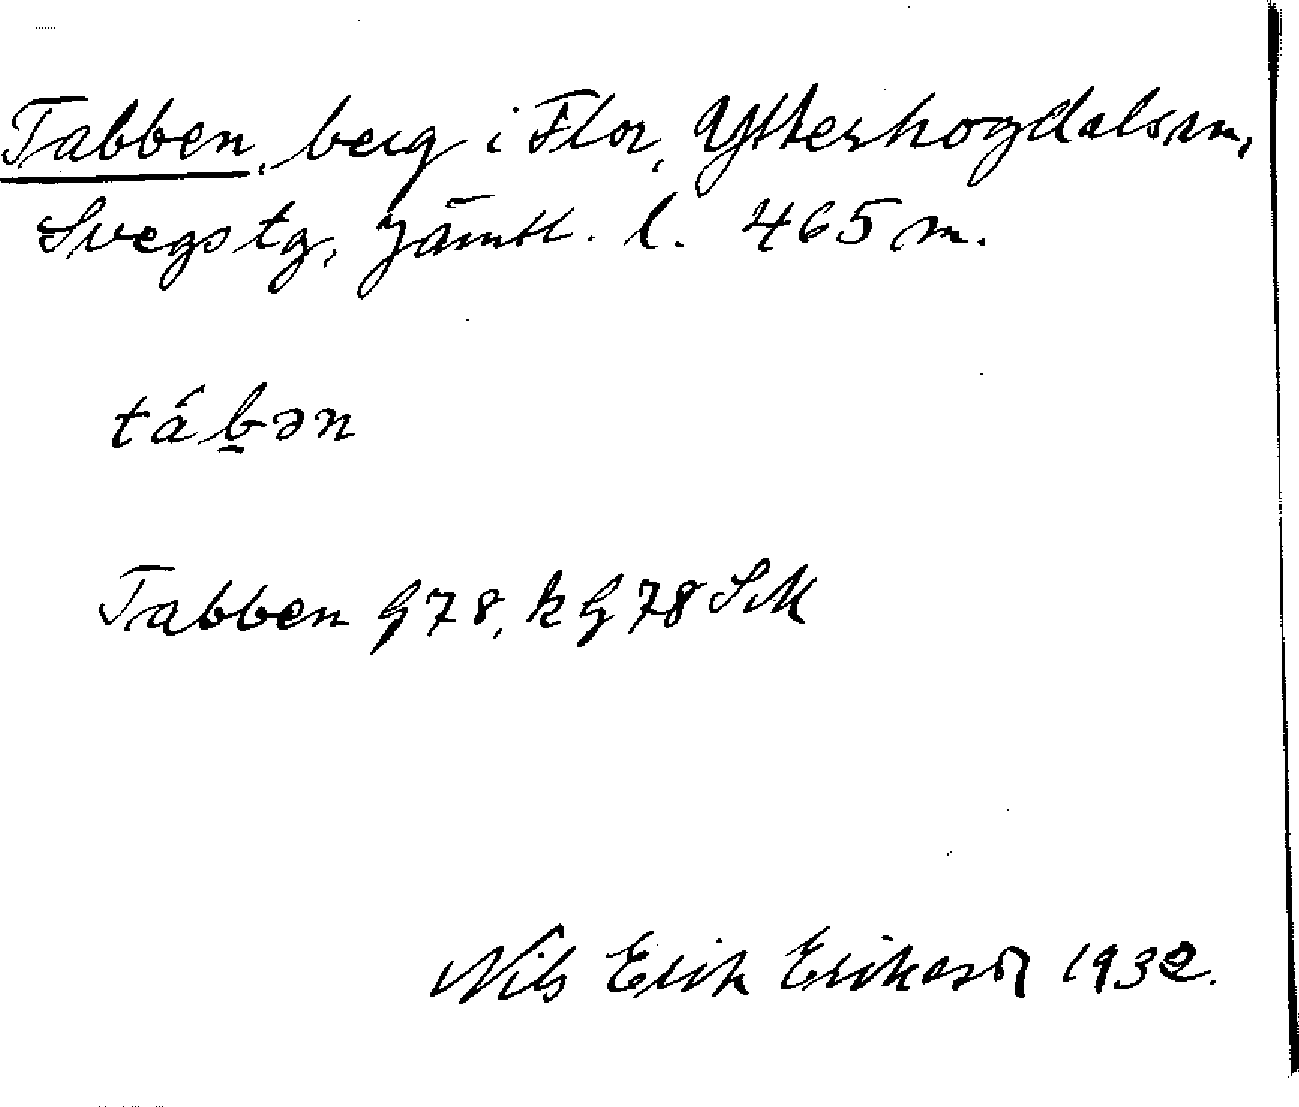 Tabben, berg i Flor, Ytterhogdals sn,
Svegs tg, Jämtl. l. 465 m.
tábən
Tabben G 78, k G 78 SM
Nils Erik Erikson 1932.